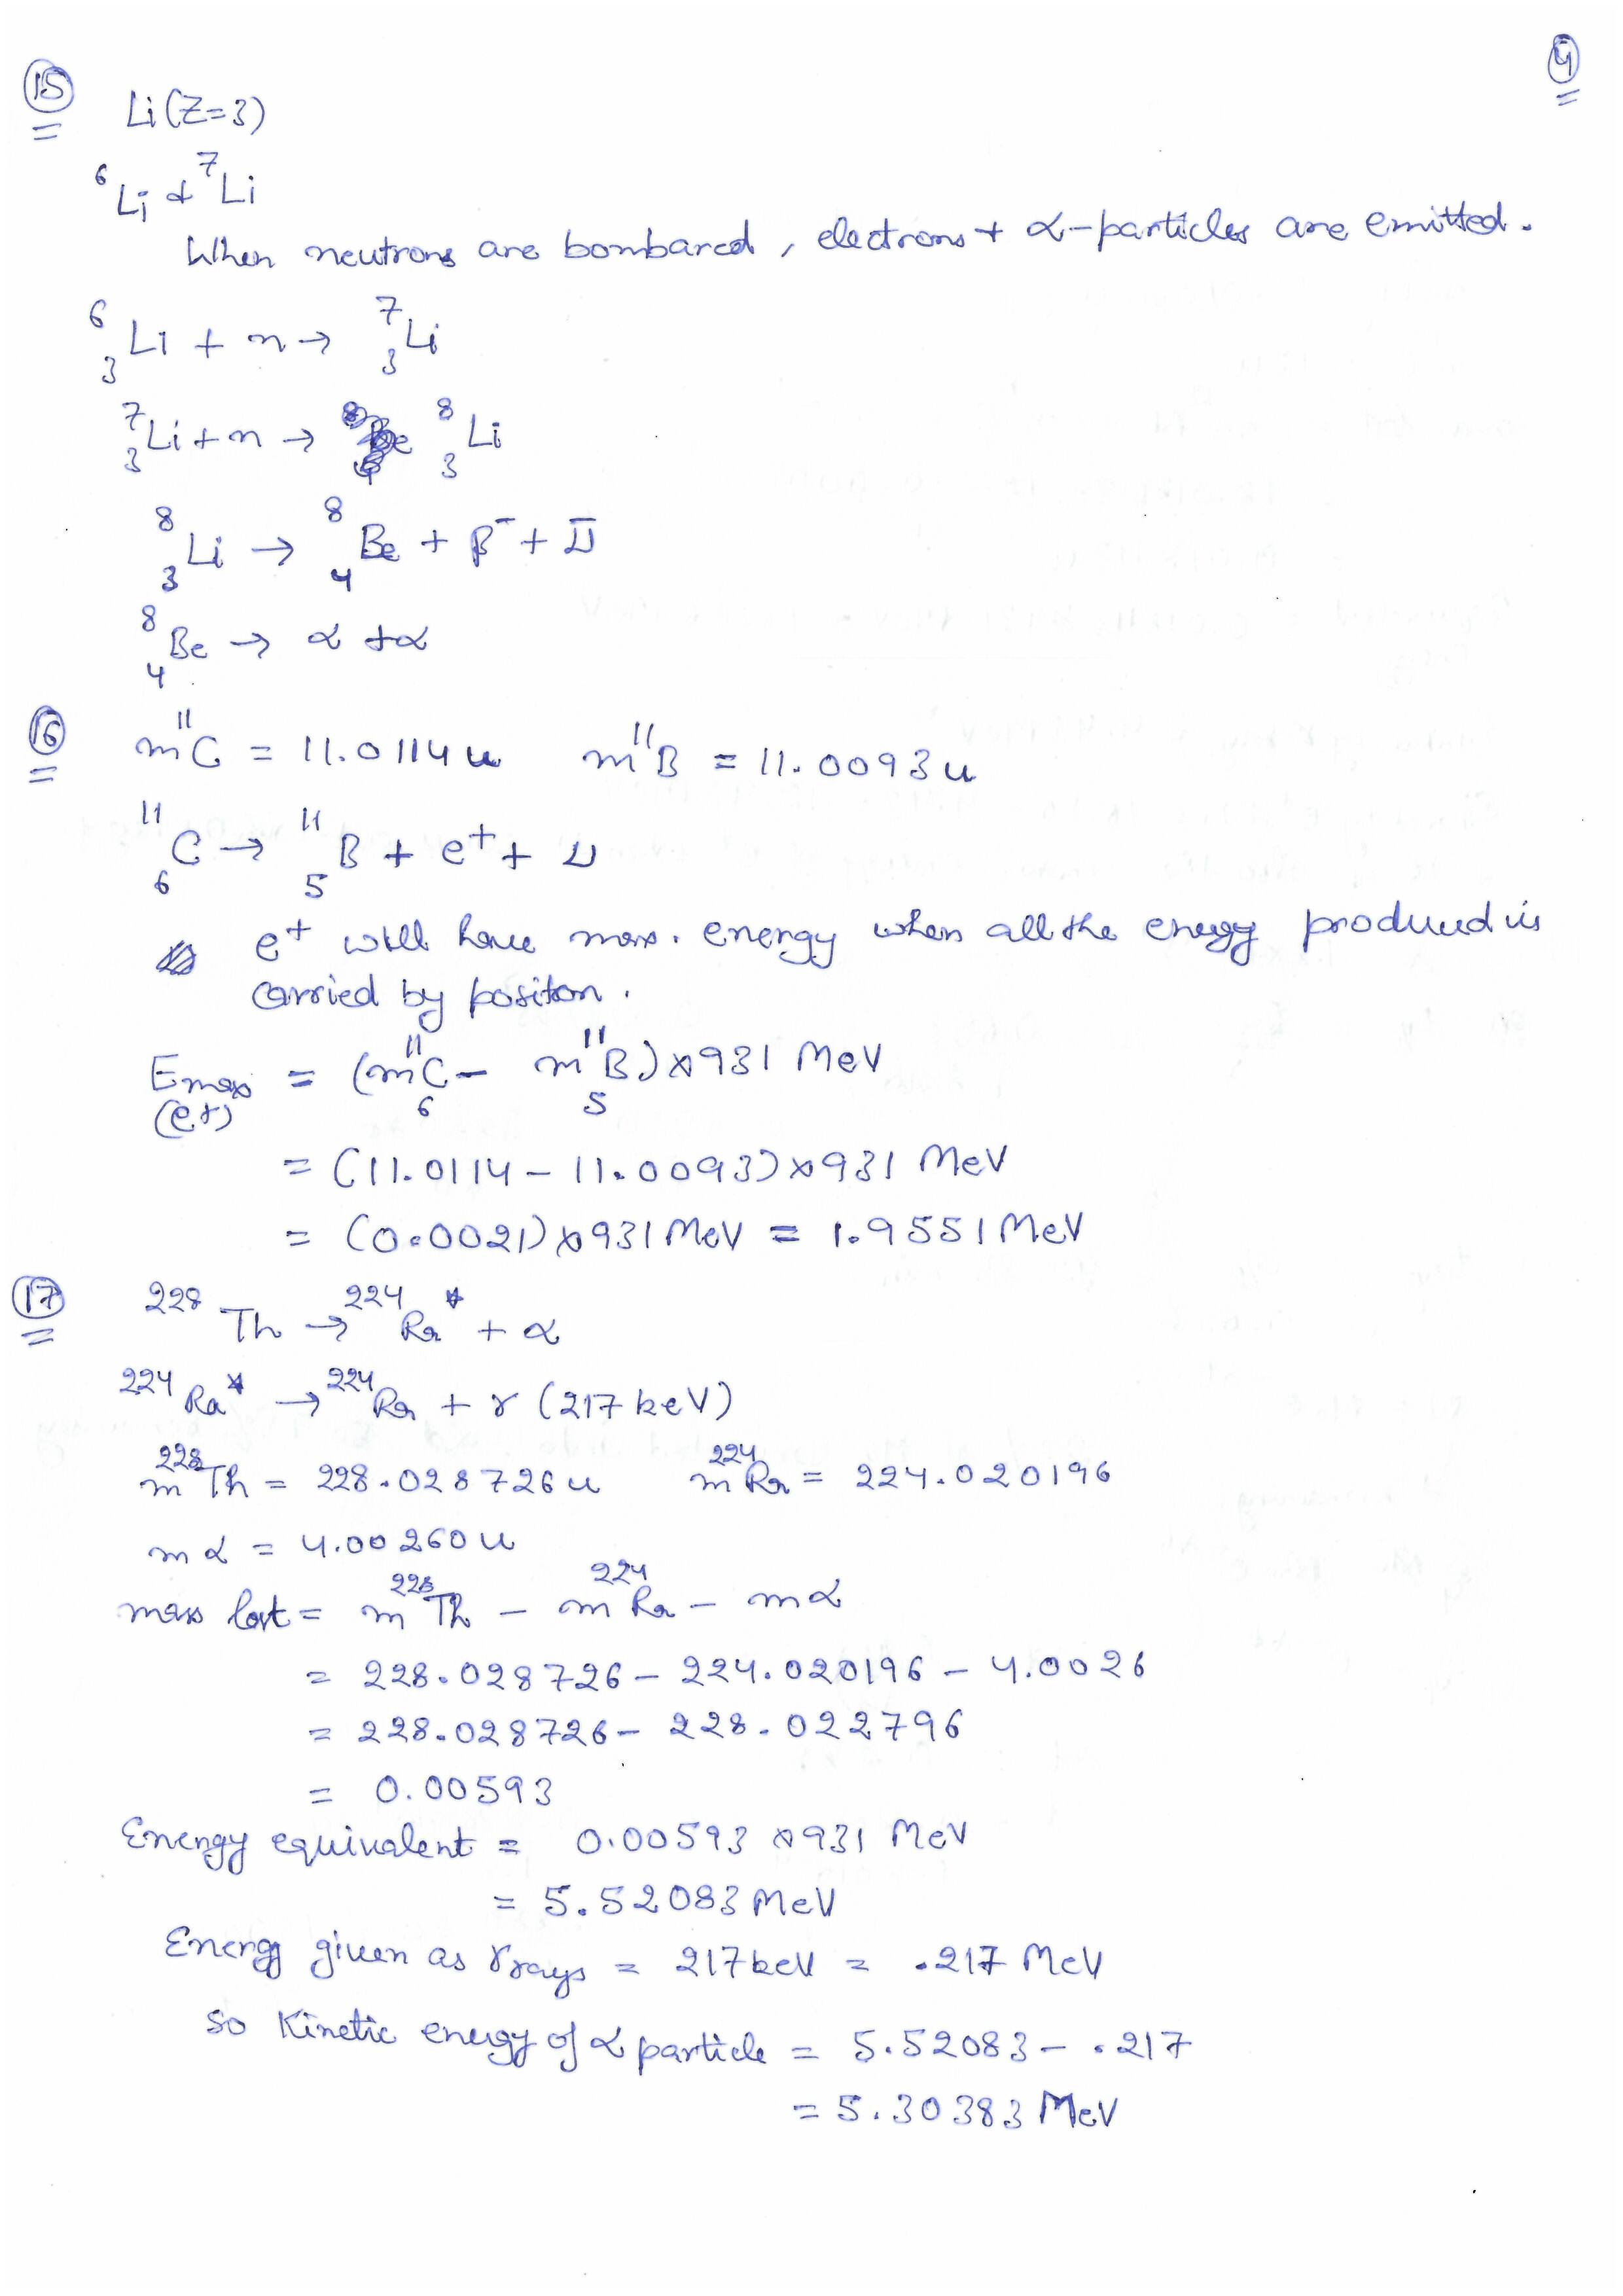 15 4
Li (Z=3)
⁶Li & ⁷Li
When neutrons are bombared, electrons + α-particles are emitted.
⁶₃Li + n → ⁷₃Li
⁷₃Li + n → ⁸₃Li
⁸₃Li → ⁸₄Be + β⁻ + ν̄
⁸₄Be → α + α
16 m¹¹C = 11.0114 u m¹¹B = 11.0093 u
¹¹₆C → ¹¹₅B + e⁺ + ν
e⁺ will have max. energy when all the energy produced is
carried by positron.
Emax = (m¹¹₆C – m¹¹₅B) × 931 MeV
(e+)
= (11.0114 – 11.0093) × 931 MeV
= (0.0021) × 931 MeV = 1.9551 MeV
17 ²²⁸Th → ²²⁴Ra* + α
²²⁴Ra* → ²²⁴Ra + γ (217 keV)
m²²⁸Th = 228.028726 u m²²⁴Ra = 224.020196
mα = 4.00260 u
mass lost = m²²⁸Th – m²²⁴Ra – mα
= 228.028726 – 224.020196 – 4.0026
= 228.028726 – 228.022796
= 0.00593
Energy equivalent = 0.00593 × 931 MeV
= 5.52083 MeV
Energy given as γ rays = 217 keV = .217 MeV
So Kinetic energy of α particle = 5.52083 – .217
= 5.30383 MeV